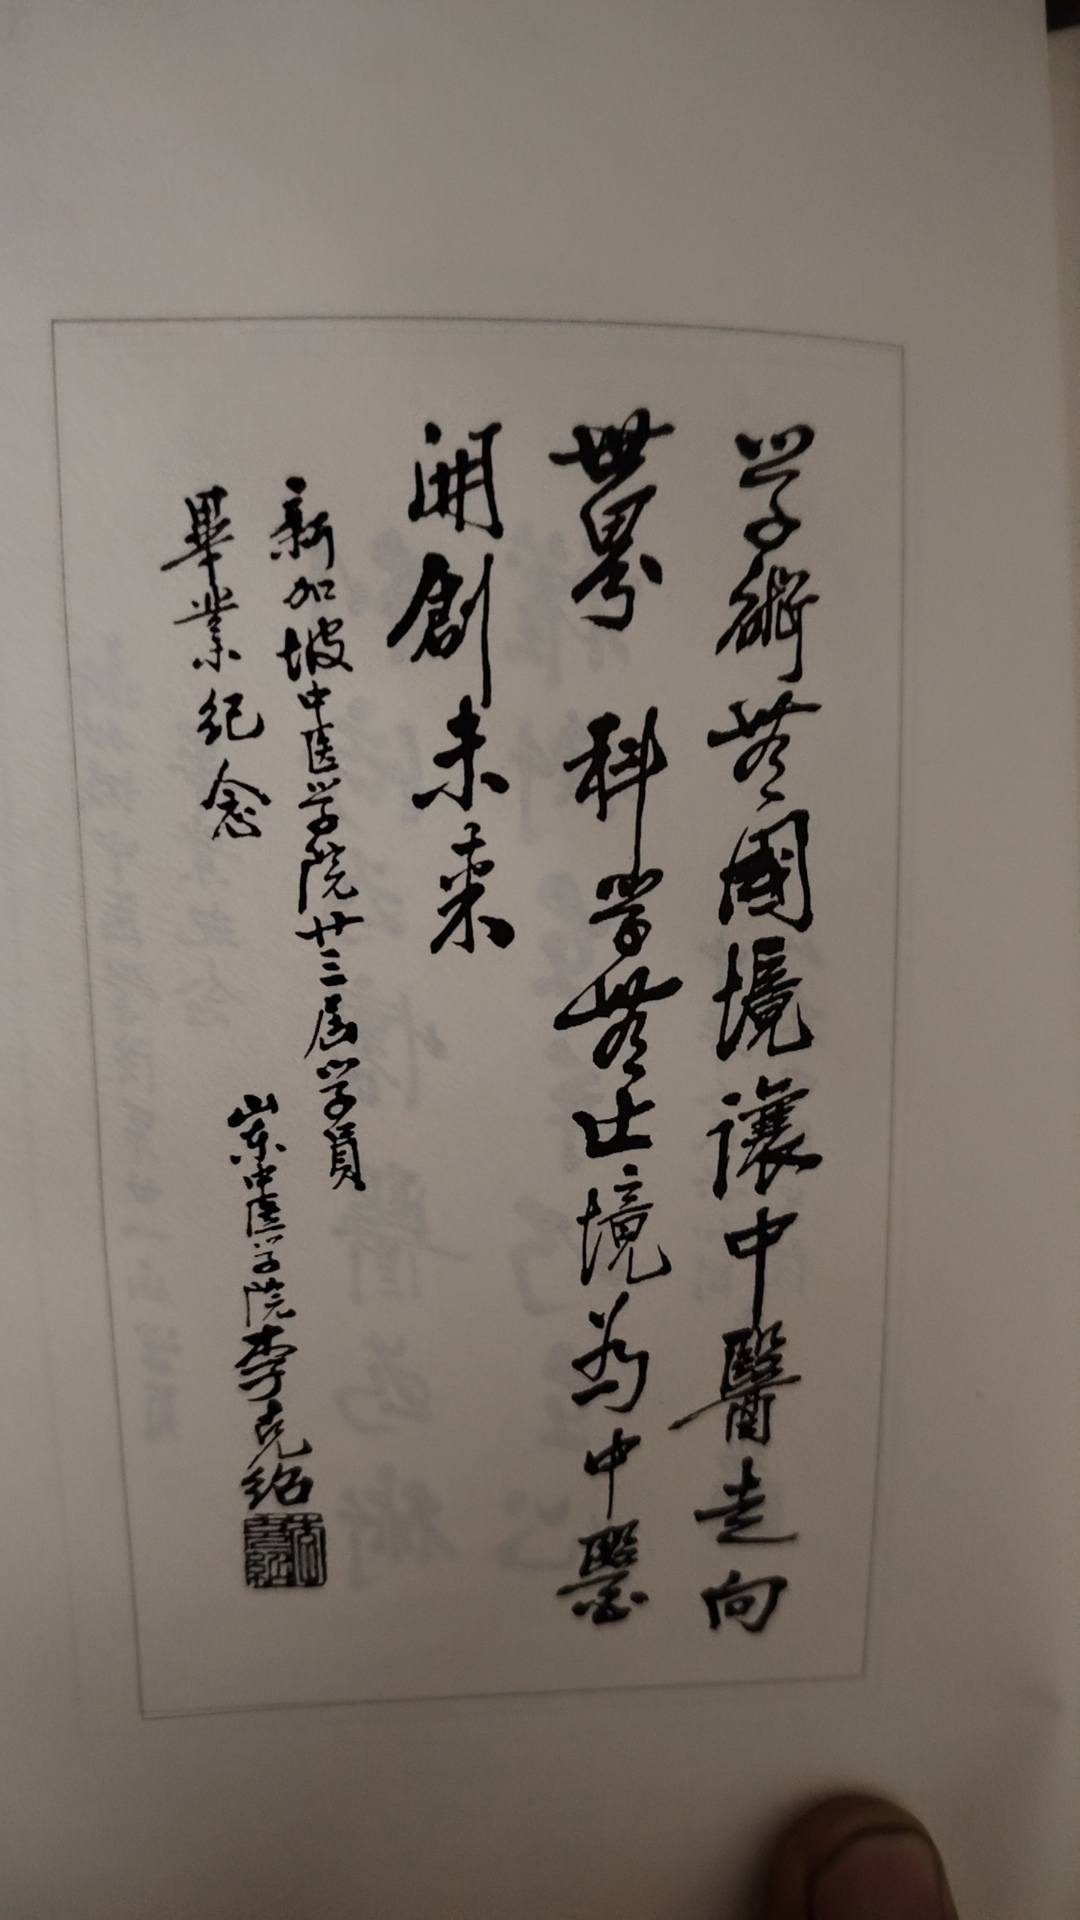 学術無國境讓中醫走向
世界 科学無止境為中醫
開創未来
新加坡中医学院廿三届学員
畢業纪念
山东中医学院李克绍